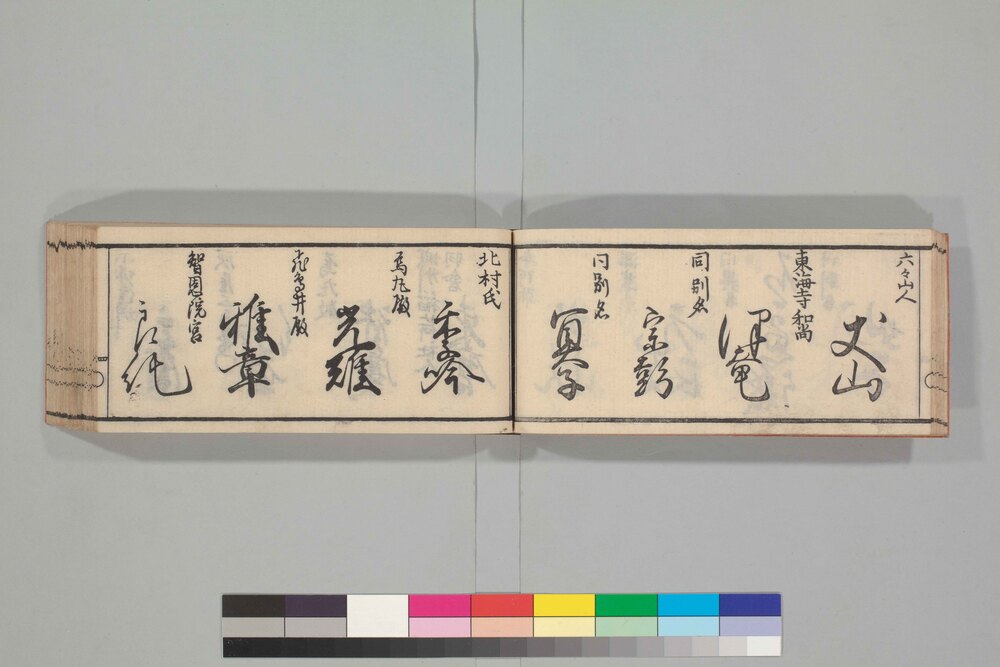 六々山人
丈山
東海寺和尚
沢庵
同別名
宗彭
同別名
冥子
北村氏
季吟
烏丸殿
光雄
飛鳥井殿
雅章
智恩院宮
良純